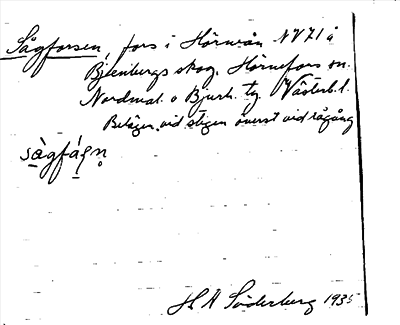 Sågforsen, fors i Hörneån NV71 å
Bjlenbergs skog, Hörnefors sn.
Nordmal. o Bjurh. tg. Västerb. l.
Belägen vid stigen överst vid rågång
sågfáṣṇ
H A Söderberg 1935